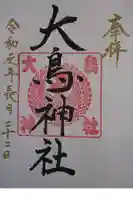 奉拝
大鳥神社
令和元年長月二十二日
大鳥
神社